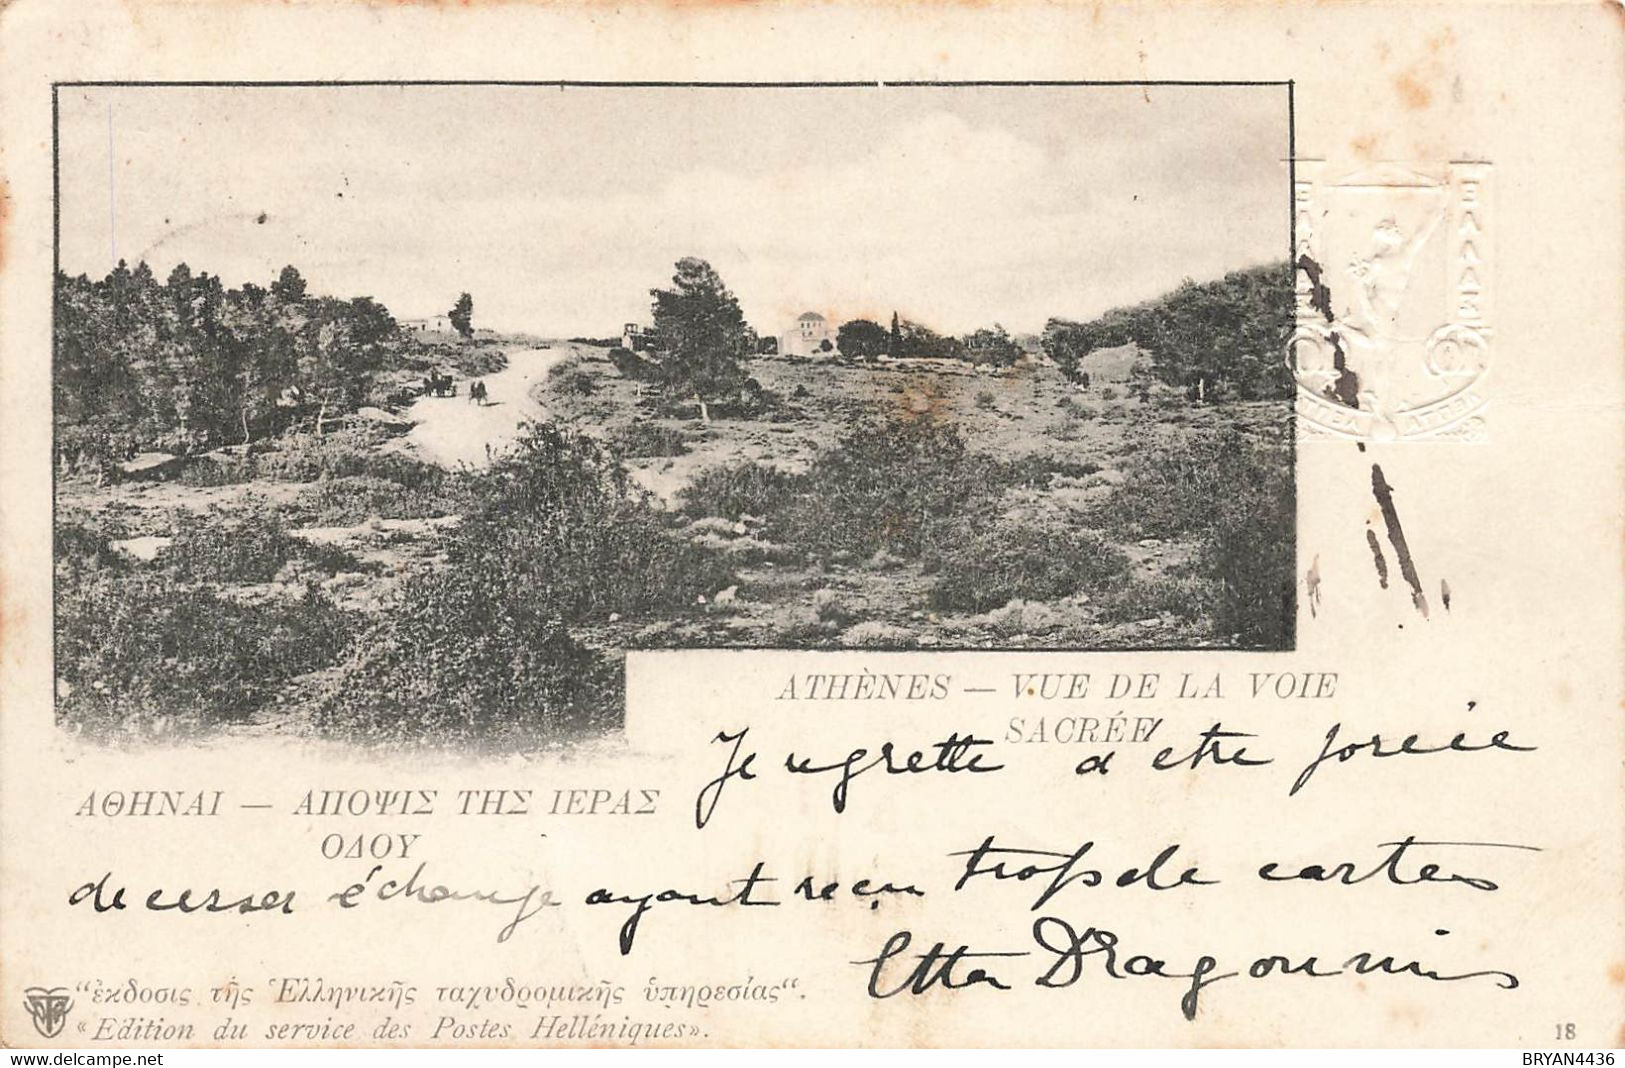 ΕΛΛΑΣ
ΕΛΛΑΣ
ΛΕΠΤΑ
ΛΕΠΤΑ
ATHÈNES — VUE DE LA VOIE
SACRÉE
ΑΘΗΝΑΙ — ΑΠΟΨΙΣ ΤΗΣ ΙΕΡΑΣ
ΟΔΟΥ
Je regrette d'etre forcée
de cesser échange ayant reçu trop de cartes
Etta Dragoumis
"ἔκδοσις τῆς Ἑλληνικῆς ταχυδρομικῆς ὑπηρεσίας".
«Edition du service des Postes Helléniques».
18
delcampe.net
BRYAN4436